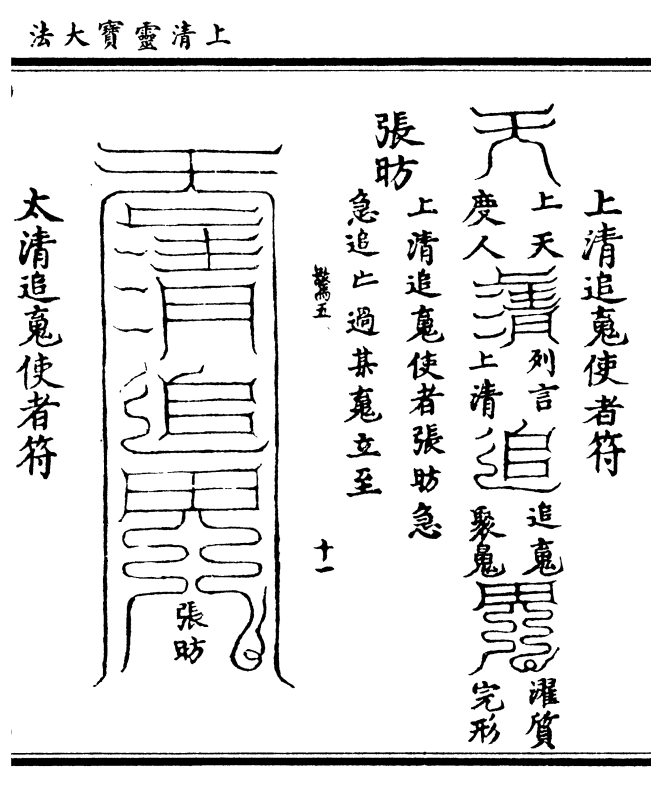 上清靈寶大法
上清追䰟使者符
天
上天
度人
清
列言
上清
追
追䰟
聚䰟
濯質
完形
張昉
上清追䰟使者張昉急
急追亡過某䰟立至
驚五
十一
天清追
張昉
太清追䰟使者符